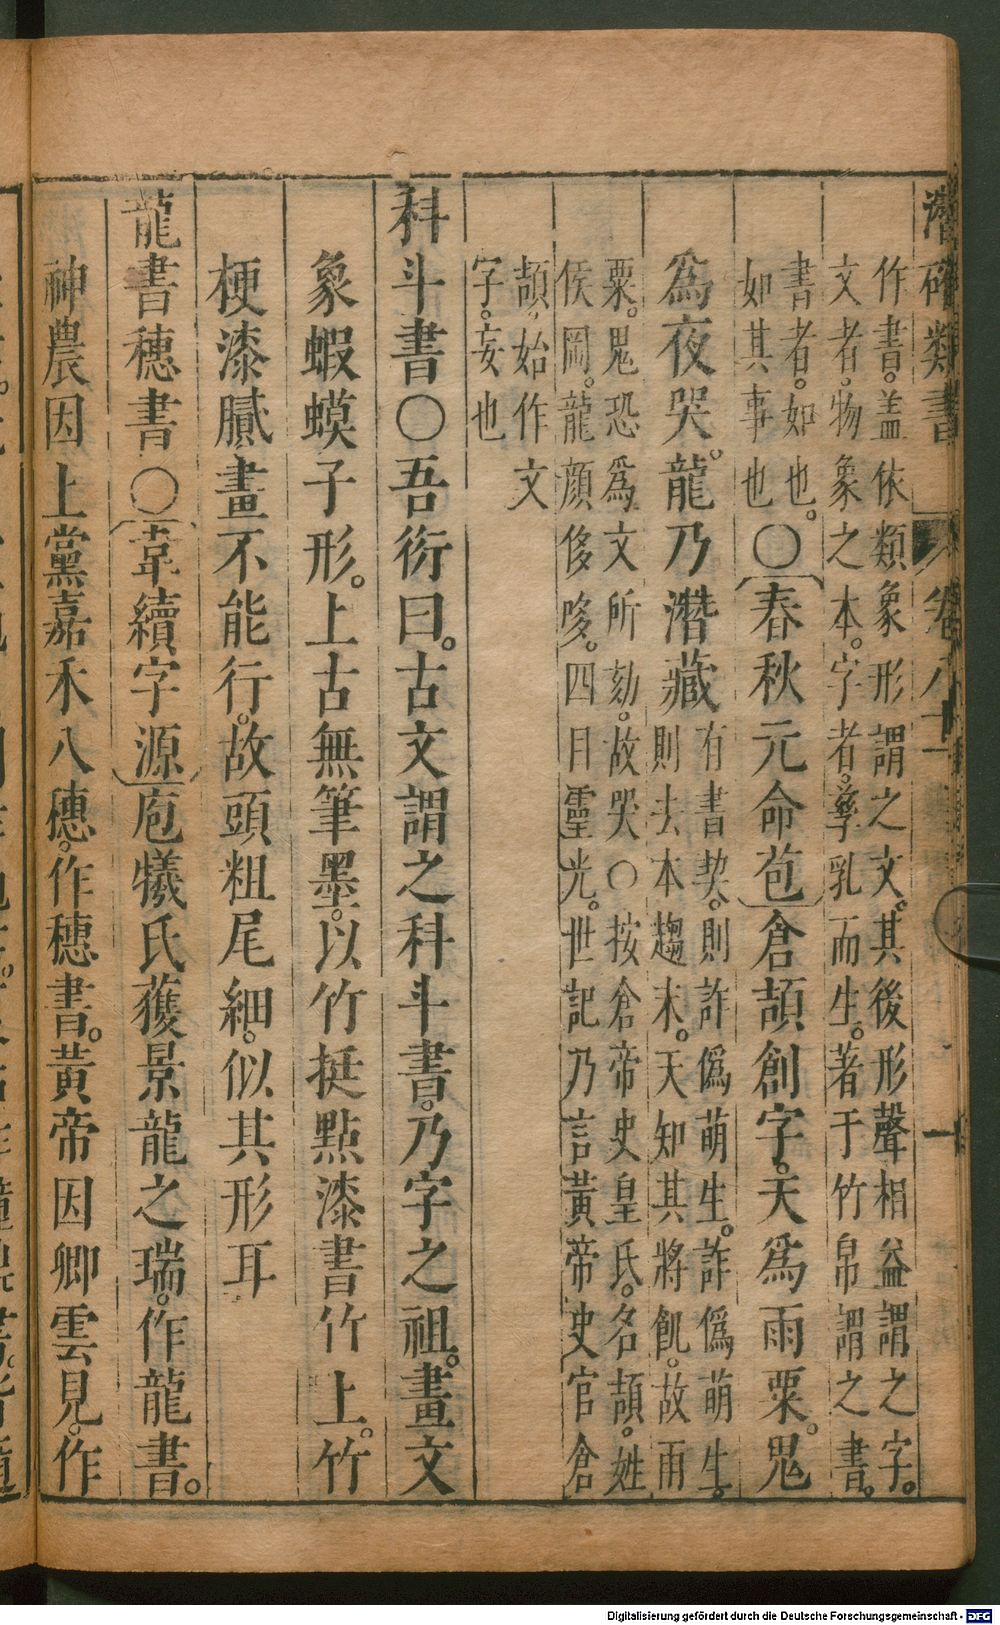 潛確類書 卷八十一 一
作書。蓋依類象形謂之文。其後形聲相益謂之字。
文者。物象之本。字者。孳乳而生。著于竹帛謂之書。
書者。如也。
如其事也。
〇春秋元命苞倉頡創字。天爲雨粟。鬼
爲夜哭。龍乃潛藏
有書契。則詐僞萌生。詐僞萌生。
則去本趨末。天知其將飢。故雨
粟。鬼恐爲文所劾。故哭〇按倉帝史皇氏。名頡。姓
侯岡。龍顏侈哆。四目靈光。世記乃言黃帝史官倉
頡。始作文
字。妄也
科斗書〇吾衍曰。古文謂之科斗書。乃字之祖。畫文
象蝦蟆子形。上古無筆墨。以竹挺點漆書竹上。竹
梗漆膩畫不能行。故頭粗尾細。似其形耳
龍書穗書〇韋續字源庖犧氏獲景龍之瑞。作龍書。
神農因上黨嘉禾八穗。作穗書。黃帝因卿雲見。作
Digitalisierung gefördert durch die Deutsche Forschungsgemeinschaft - DFG